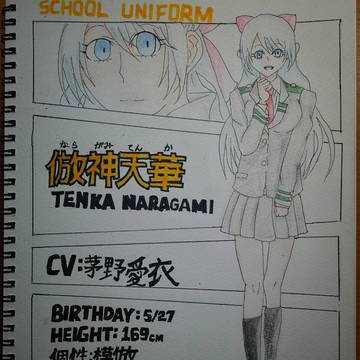 SCHOOL UNIFORM
ならがみてんか
倣神天華
TENKA NARAGAMI
CV:茅野愛衣
BIRTHDAY: 5/27
HEIGHT: 169cm
個性:模倣